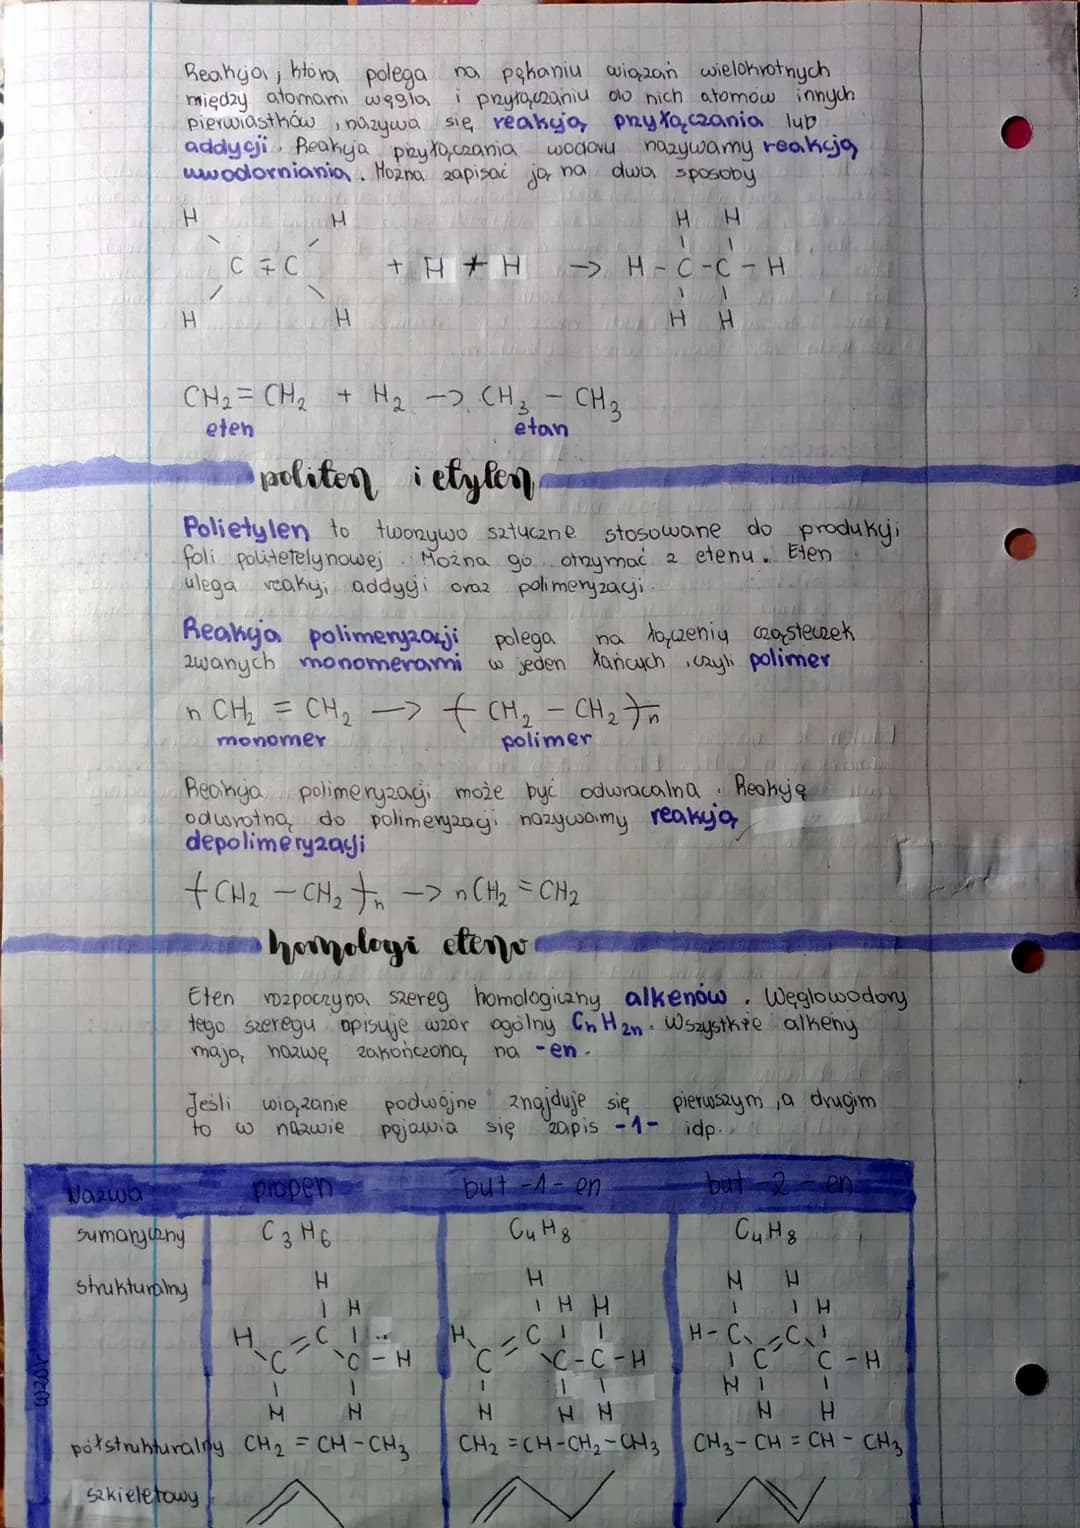 Reakcja, która polega na pękaniu wiązań wielokrotnych
między atomami węgla i przyłączaniu do nich atomów innych
pierwiastków, nazywa się reakcją przyłączania lub
addycji. Reakcja przyłączania wodoru nazywamy reakcją
uwodorniania. Można zapisać ją na dwa sposoby
H H H H
C = C + H - H -> H - C - C - H
H H H H
CH₂ = CH₂ + H₂ -> CH₃ - CH₃
eten etan
politen i etylen
Polietylen to tworzywo sztuczne stosowane do produkcji
foli politetelynowej. Można go otrzymać z etenu. Eten
ulega reakcji addycji oraz polimeryzacji.
Reakcja polimeryzacji polega na łączeniu cząsteczek
zwanych monomerami w jeden łańcuch, czyli polimer
n CH₂ = CH₂ -> -(CH₂ - CH₂)-n
monomer polimer
Reakcja polimeryzacji może być odwracalna. Reakcję
odwrotną do polimeryzacji nazywamy reakcją
depolimeryzacji
-(CH₂ - CH₂)-n -> n CH₂ = CH₂
homologi etenu
Eten rozpoczyna szereg homologiczny alkenów. Węglowodory
tego szeregu opisuje wzór ogólny CnH2n. Wszystkie alkeny
mają nazwę zakończoną na -en.
Jeśli wiązanie podwójne znajduje się pierwszym, a drugim
to w nazwie pojawia się zapis -1- idp.
Nazwa propen but-1-en but-2-en
wzór
sumaryczny C₃H₆ C₄H₈ C₄H₈
strukturalny H H H H
H H H H
H C H C H-C C H
C C-H C C-C-H C C-H
H H H H H H H H
półstrukturalny CH₂ = CH-CH₃ CH₂ = CH-CH₂-CH₃ CH₃-CH = CH-CH₃
szkieletowy